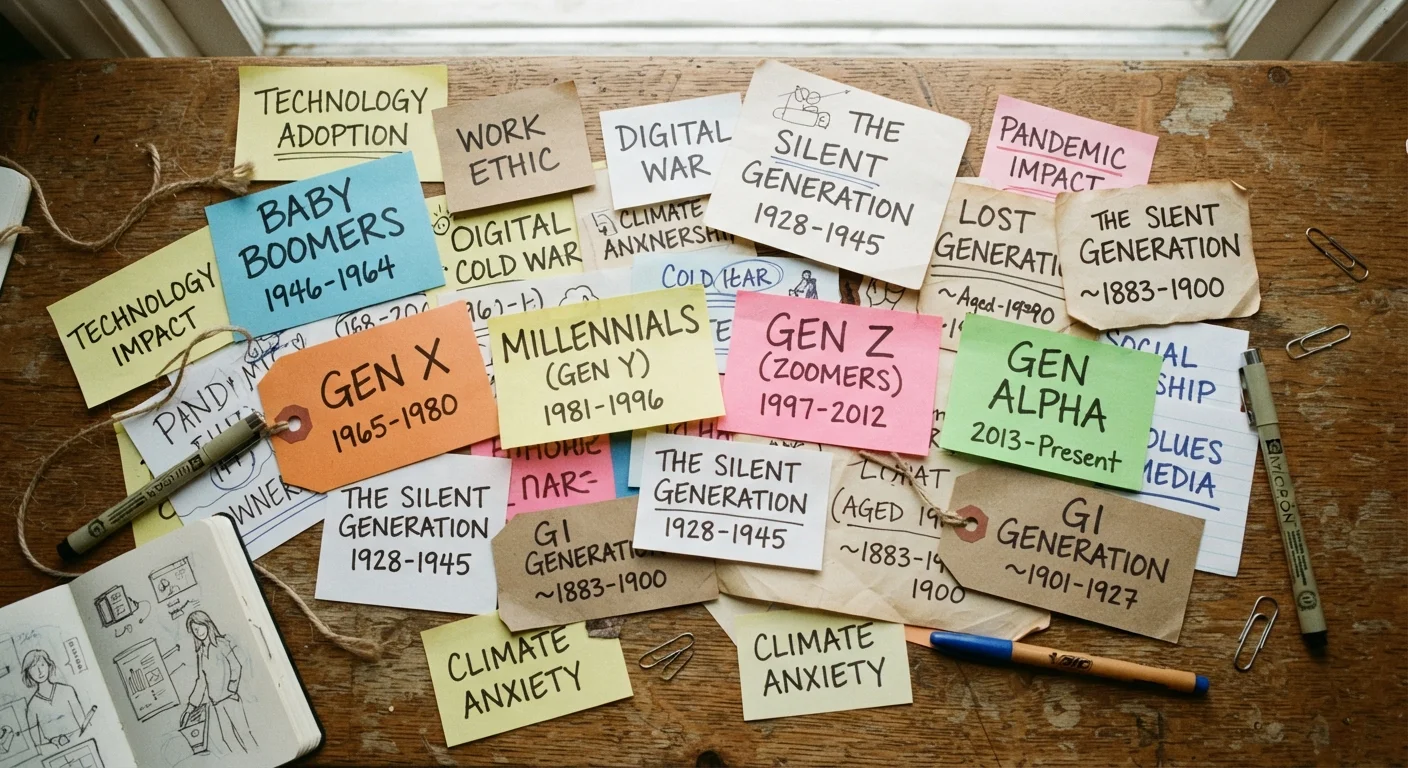 TECHNOLOGY
ADOPTION
WORK
ETHIC
DIGITAL
WAR
THE
SILENT
GENERATION
1928-1945
PANDEMIC
IMPACT
BABY
BOOMERS
1946-1964
OIGITAL
COLD WAR
CLIMATE
ANXNERSHIP
LOST
GENERATI
~Aged-1990
THE SLENT
GENERATION
~1883-1900
TECHNOLOGY
IMPACT
COLD
GEN X
1965-1980
MILLENNIALS
(GEN Y)
1981-1996
GEN Z
(ZOOMERS)
1997-2012
GEN
ALPHA
2013-Present
SOCIAL
SHIP
OLUES
MEDIA
PAND
OWNER
THE SILENT
GENERATION
1928-1945
GI
GENERATION
~1883-1900
THE SILENT
GENERATION
1928-1945
(AGED 19
~1883-19
1900
GI
GENERATION
~1901-1927
CLIMATE
ANXIETY
CLIMATE
ANXIETY